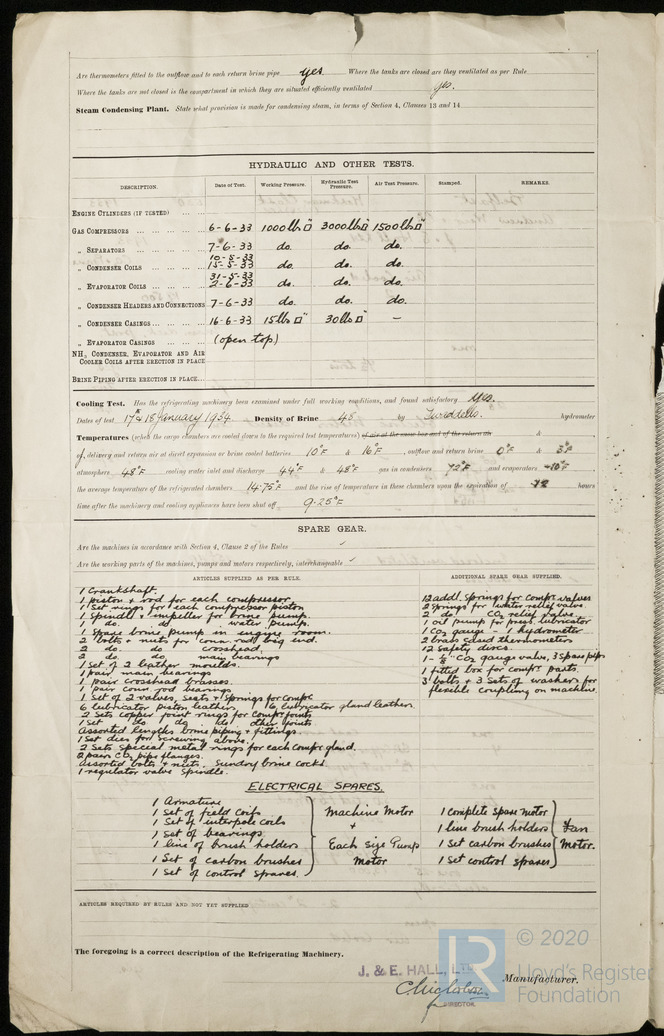 Are thermometers fitted to the outflow and to each return brine pipe yes Where the tanks are closed are they ventilated as per Rule
Where the tanks are not closed is the compartment in which they are situated efficiently ventilated yes.
Steam Condensing Plant. State what provision is made for condensing steam, in terms of Section 4, Clauses 13 and 14
HYDRAULIC AND OTHER TESTS.
DESCRIPTION. Date of Test. Working Pressure. Hydraulic Test Pressure. Air Test Pressure. Stamped. REMARKS.
ENGINE CYLINDERS (IF TESTED)
GAS COMPRESSORS 6-6-33 1000 lbs □" 3000 lbs □" 1500 lbs □"
„ SEPARATORS 7-6-33 do. do. do.
10-5-33
„ CONDENSER COILS 15-5-33 do. do. do.
31-5-33
„ EVAPORATOR COILS 2-6-33 do. do. do.
„ CONDENSER HEADERS AND CONNECTIONS 7-6-33 do. do. do.
„ CONDENSER CASINGS 16-6-33 15 lbs □" 30 lbs □" –
„ EVAPORATOR CASINGS (open top)
NH3 CONDENSER, EVAPORATOR AND AIR
COOLER COILS AFTER ERECTION IN PLACE
BRINE PIPING AFTER ERECTION IN PLACE
Cooling Test. Has the refrigerating machinery been examined under full working conditions, and found satisfactory Yes.
Dates of test 17th & 18 January 1934 Density of Brine 48 by Twaddells. hydrometer
Temperatures (when the cargo chambers are cooled down to the required test temperatures) of air at the snow box and of the return air &
of, delivery and return air at direct expansion or brine cooled batteries 10°F & 16°F, outflow and return brine 0°F & 3°F
atmosphere 48°F cooling water inlet and discharge 44°F & 48°F gas in condensers 72°F and evaporators -10°F
the average temperature of the refrigerated chambers 14.75°F and the rise of temperature in these chambers upon the expiration of 12 hours
time after the machinery and cooling appliances have been shut off 9.25°F
SPARE GEAR.
Are the machines in accordance with Section 4, Clause 2 of the Rules ✓
Are the working parts of the machines, pumps and motors respectively, interchangeable ✓
ARTICLES SUPPLIED AS PER RULE.
1 Crankshaft.
1 piston & rod for each compressor.
1 Set rings for each compressor piston
1 Spindle & impeller for brine pump.
1 do. do. water pump.
1 Spare brine pump in engine room.
2 bolts & nuts for conn. rod big end.
2 do. do. crosshead.
2 do. do. main bearings
1 Set of 2 leather moulds.
1 pair main bearings
1 pair crosshead brasses.
1 pair conn. rod bearings
1 Set of 2 valves, seats & springs for compr.
6 lubricator piston leathers, 16 lubricator gland leathers.
2 Sets copper joint rings for compr joints
1 Set do do do other joints
Assorted lengths brine piping & fittings.
1 Set dies for screwing above.
2 Sets special metal rings for each compr gland.
2 pairs CO2 pipe flanges.
Assorted bolts & nuts. Sundry brine cocks.
1 regulator valve spindle.
ADDITIONAL SPARE GEAR SUPPLIED.
12 addl. springs for compr valves
2 springs for water relief valve.
2 do. CO2 relief valve.
1 oil pump for press. lubricator
1 CO2 gauge – 1 hydrometer
2 brass cased thermometers
12 safety discs.
1 - 1/8" CO2 gauge valve, 3 spare pipes
1 fitted box for compr parts.
3 bolts & 3 sets of washers for
flexible coupling on machine.
ELECTRICAL SPARES.
1 Armature
1 Set of field coils
1 Set of interpole coils
1 Set of bearings
1 line of brush holders
1 Set of carbon brushes
1 Set of control spares.
Machine Motor
+
Each size Pump
Motor
1 Complete spare motor
1 line brush holders
1 Set carbon brushes
1 Set control spares
Fan
Motor.
ARTICLES REQUIRED BY RULES AND NOT YET SUPPLIED
The foregoing is a correct description of the Refrigerating Machinery.
J. & E. HALL, LTD
Manufacturer.
DIRECTOR.
LR
© 2020
Lloyd's Register
Foundation